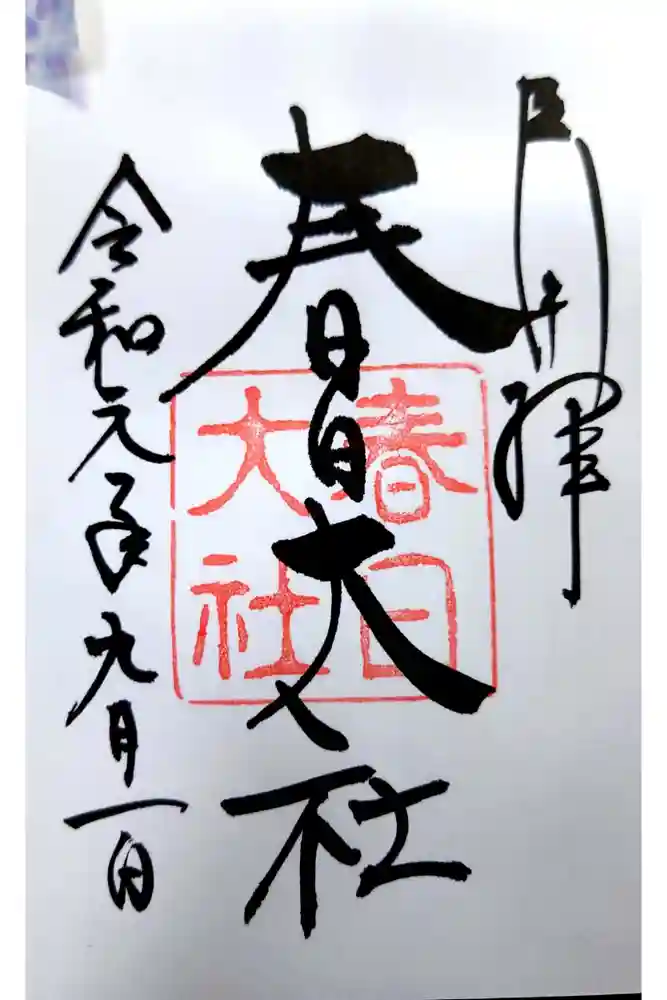 春日大社
春日
大社
令和元年九月一日